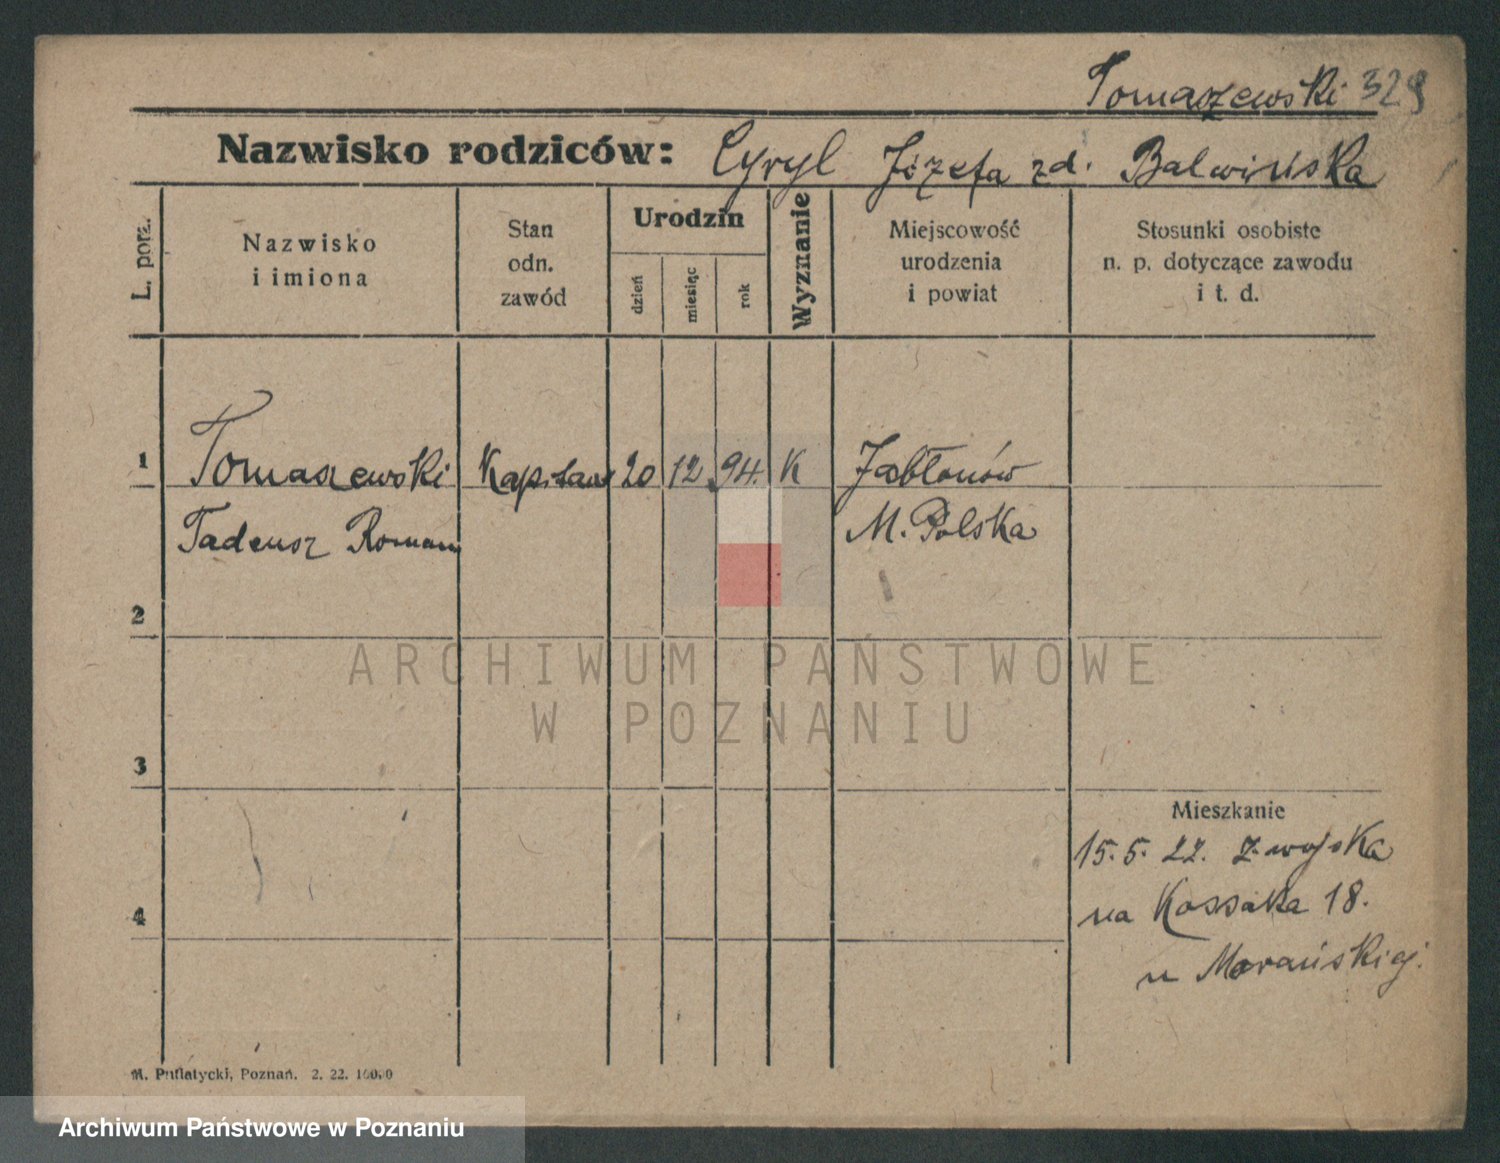 Tomaszewski 329
Nazwisko rodziców: Cyryl Józefa zd. Balwińska
L. porz.
Nazwisko
i imiona
Stan
odn.
zawód
Urodzin
dzień
miesiąc
rok
Wyznanie
Miejscowość
urodzenia
i powiat
Stosunki osobiste
n. p. dotyczące zawodu
i t. d.
1 Tomaszewski Kapitan 20 12 94. K Jabłonów
Tadeusz Roman M. Polska
2
ARCHIWUM PAŃSTWOWE
W POZNANIU
3
Mieszkanie
15. 5. 22. z wojska
4 na Kossaka 18.
u Morańskiej.
M. Putiatycki, Poznań. 2. 22. 10000
Archiwum Państwowe w Poznaniu